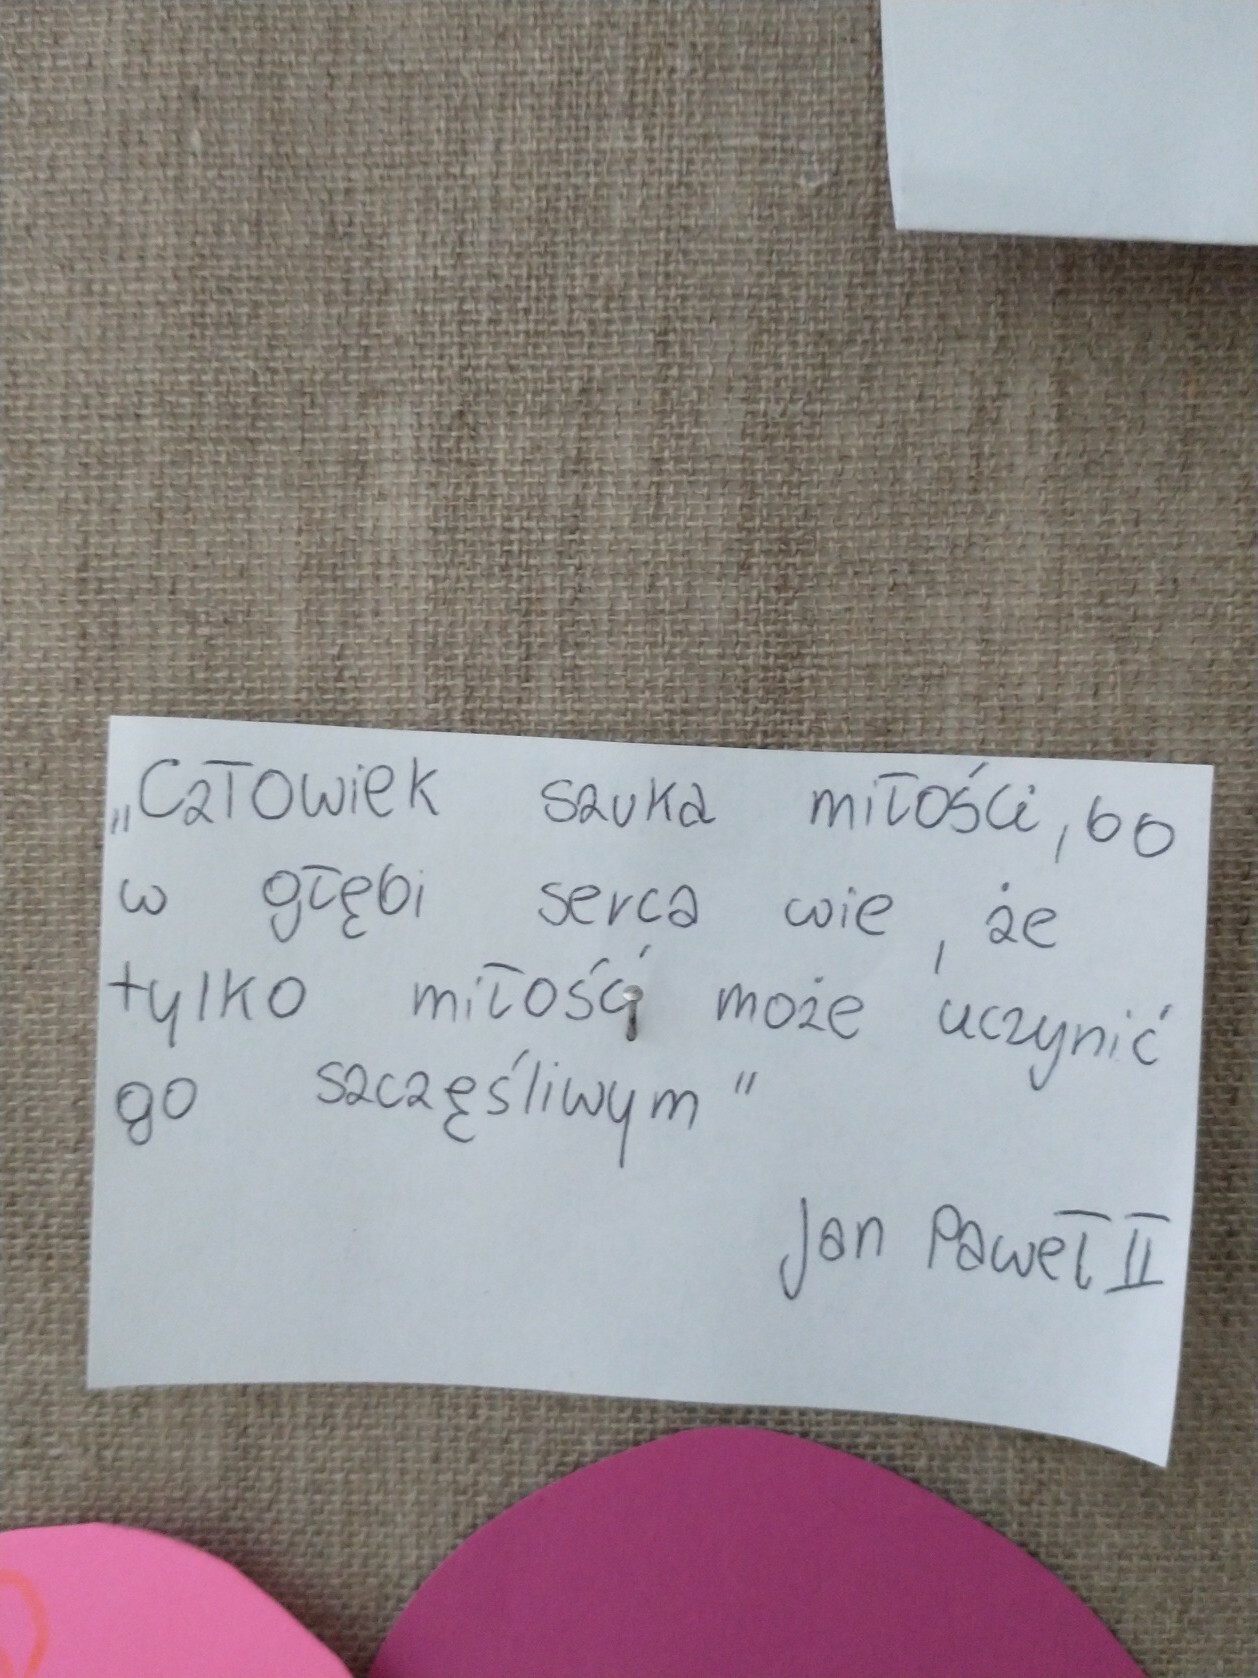 „Człowiek szuka miłości, bo
w głębi serca wie, że
tylko miłość może uczynić
go szczęśliwym"
Jan Paweł II